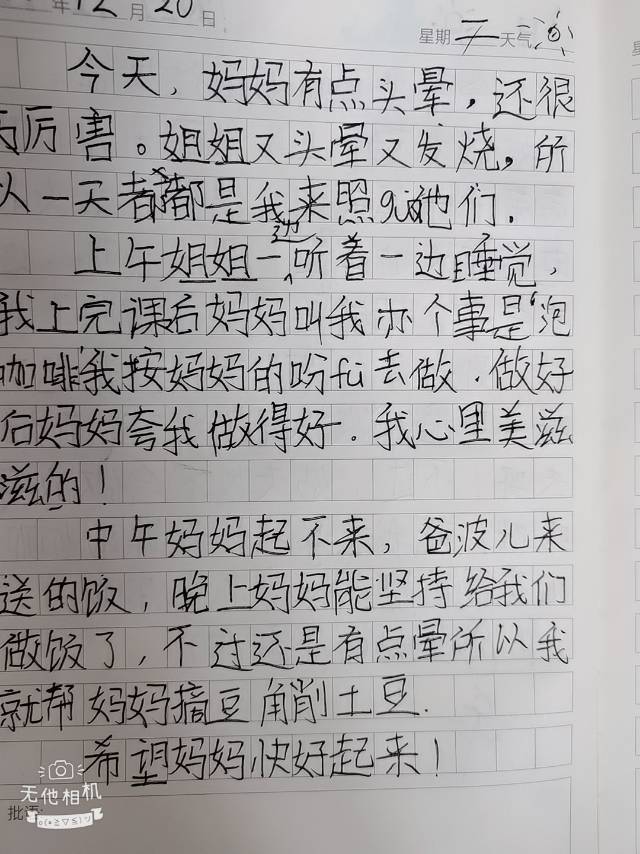 年12月20日 星期二 天气
今天，妈妈有点头晕，还很
厉害。姐姐又头晕又发烧。所
以一天者都都是我来照gu她们.
上午姐姐一边听着一边睡觉，
我上完课后妈妈叫我办个事是“泡
咖啡”我按妈妈的吩fù去做.做好
后妈妈夸我做得好.我心里美滋
滋的！
中午妈妈起不来，爸波儿来
送的饭，晚上妈妈能坚持给我们
做饭了，不过还是有点晕所以我
就帮妈妈摘豆角削土豆.
希望妈妈快好起来！
无他相机
批语: